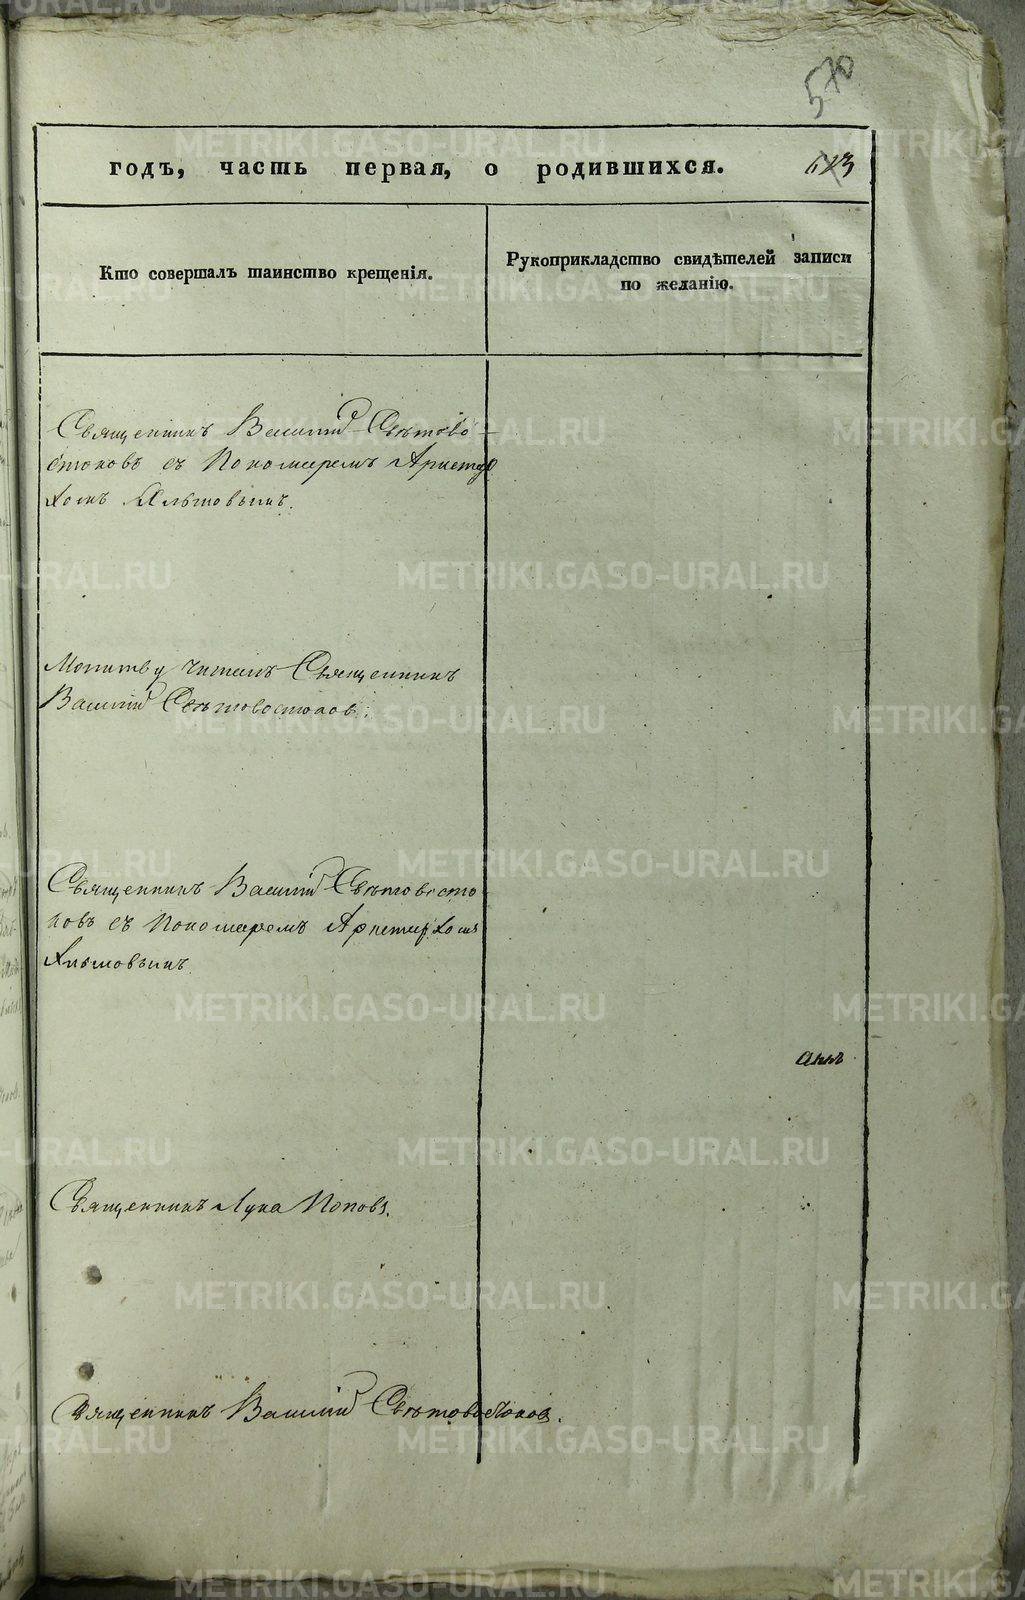 570
годъ, часть первая, о родившихся.
Кто совершалъ таинство крещенія.
Рукоприкладство свидѣтелей записи
по желанію.
Священникъ Василій Свѣтово-
стоковъ съ Пономаремъ Аристар
хомъ
Молитву читалъ Священникъ
Василій Свѣтовостоковъ.
Священникъ Василій Свѣтовосто
ковъ съ Пономаремъ Аристархомъ
Священникъ Лука Поповъ.
Священникъ Василій Свѣтовостоковъ.
METRIKI.GASO-URAL.RU